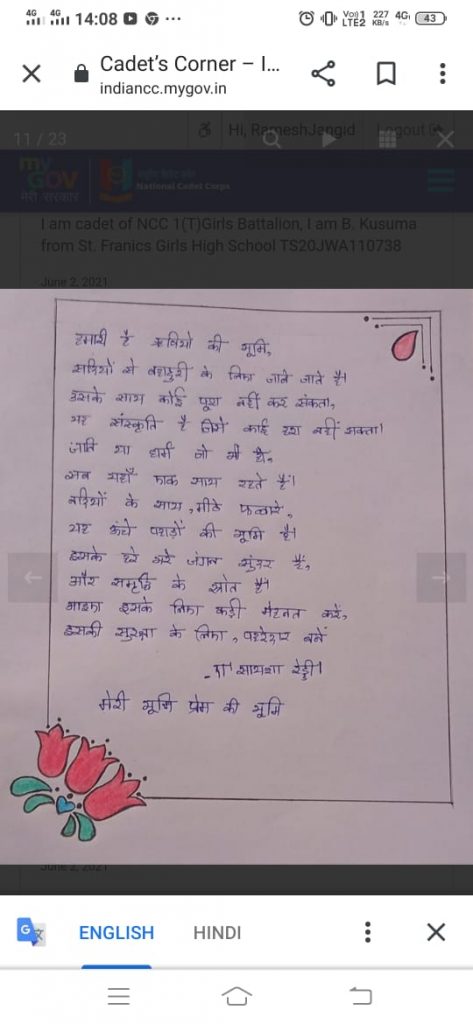 4G 4G 14:08 Vo)) 1 LTE2 227 KB/s 4G 43
Cadet’s Corner – I...
indiancc.mygov.in
11 / 23 Hi, RameshJangid Logout
my GOV
मेरी सरकार
राष्ट्रीय कैडेट कोर
National Cadet Corps
I am cadet of NCC 1(T)Girls Battalion, I am B. Kusuma
from St. Franics Girls High School TS20JWA110738
June 2, 2021
हमारी है ऋषियो की भूमि,
सदियों से बहादुरी के लिए जाने जाते है।
इसके साथ कोई पूरा नहीं कर सकता,
यह संस्कृति है जिसे कोई हरा नहीं सकता।
जाति या धर्म जो भी हो,
सब यहाँ एक साथ रहते हैं।
नदियों के साथ, मीठे फव्वारे,
यह ऊंचे पहाड़ों की भूमि है।
इसके हरे भरे जंगल सुंदर हैं,
और समृद्धि के स्रोत है।
आइए इसके लिए कड़ी मेहनत करें,
इसकी सुरक्षा के लिए, पहरेदार बनें
सायशा रेड्डी।
मेरी भूमि प्रेम की भूमि
June 2, 2021
ENGLISH HINDI